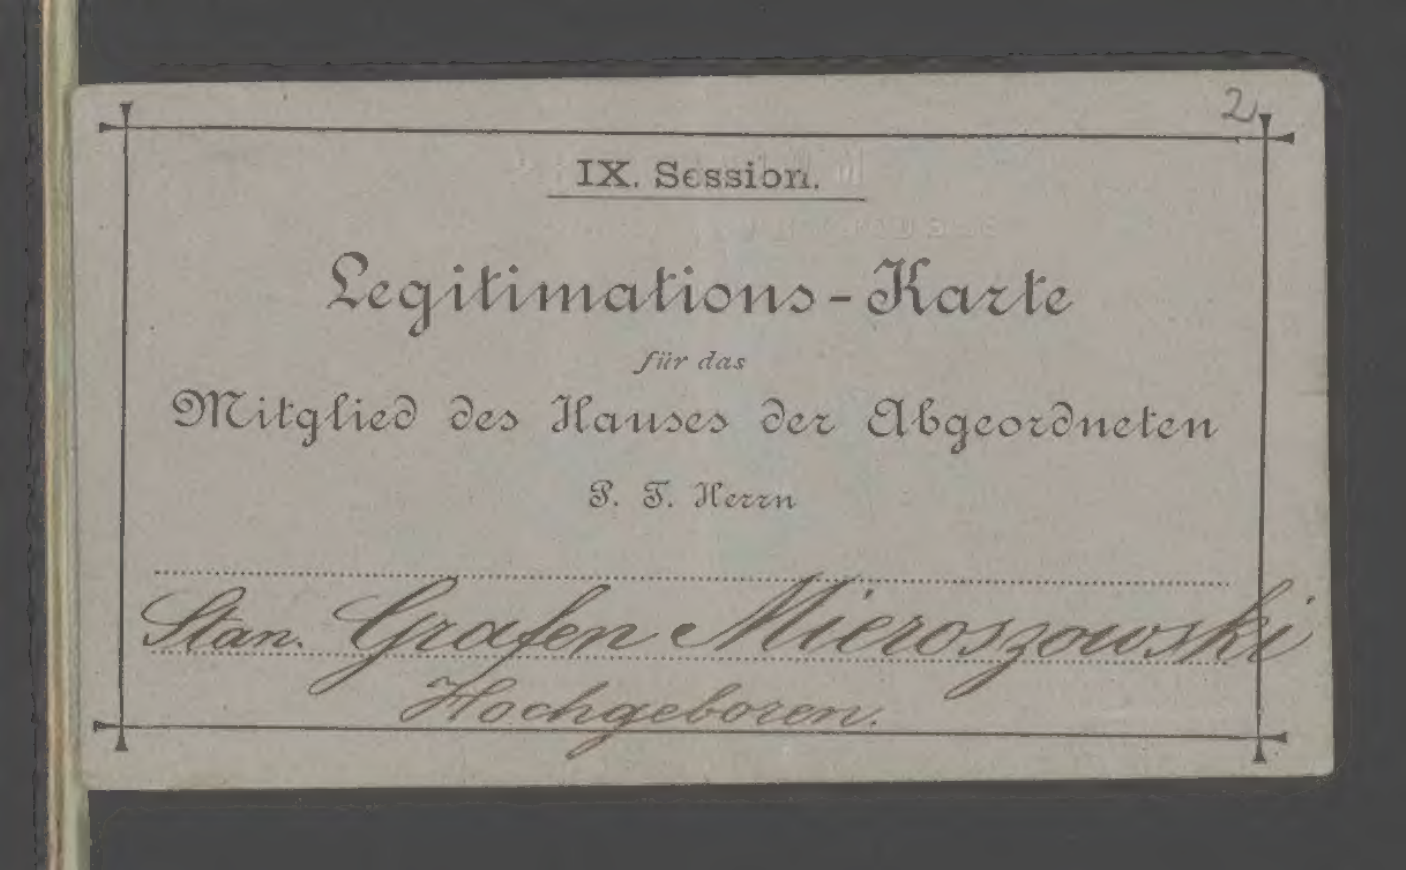 2
IX. Session.
Legitimations-Karte
für das
Mitglied des Hauses der Abgeordneten
P. T. Herrn
Stan. Grafen Mieroszowski
Hochgeboren.